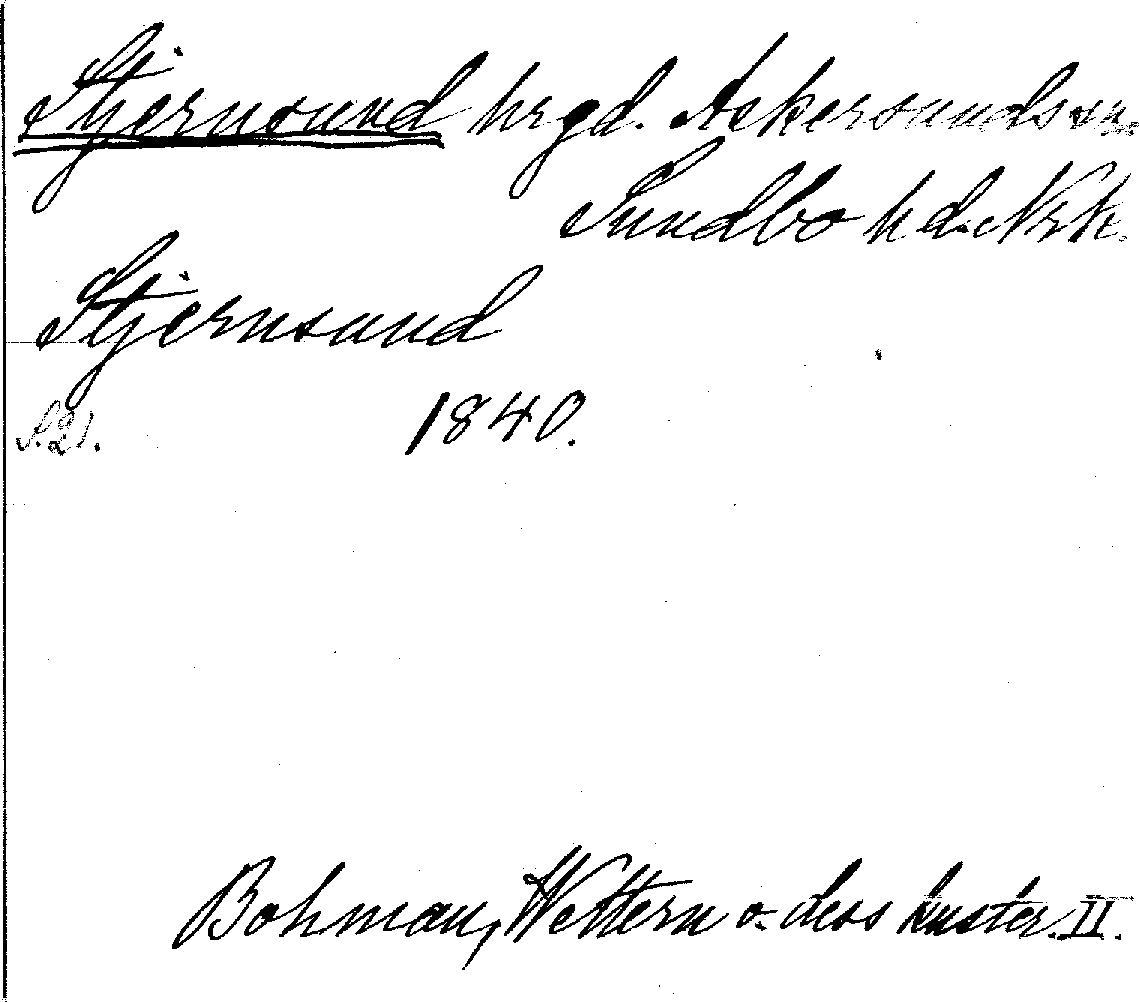 Stjernsund hrgd. Askersunds sn.
Sundbo hd. Nrk.
Stjernsund
S. 21. 1840.
Bohman, Wettern o. dess kuster. II.